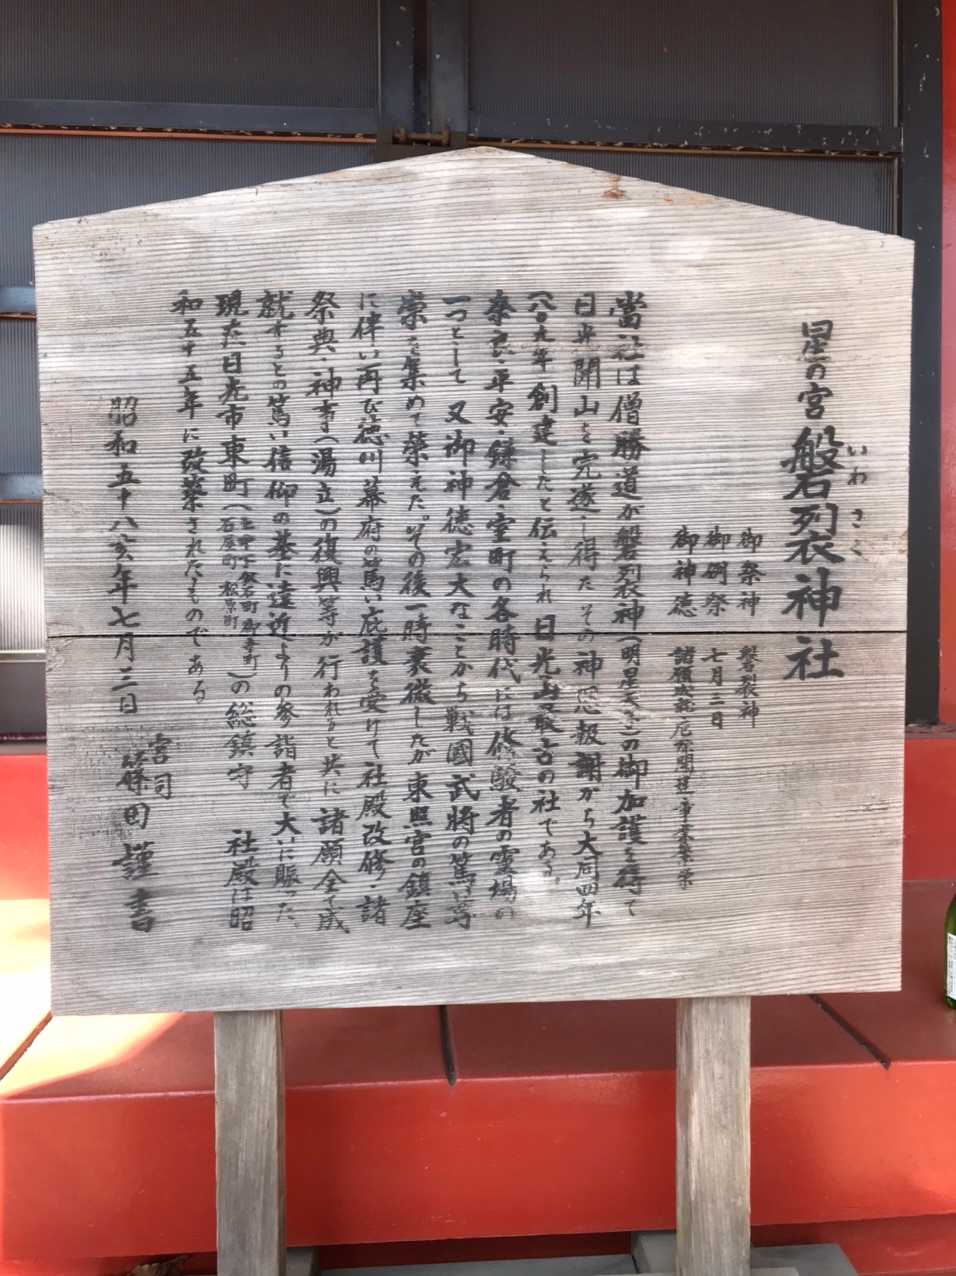 星の宮 磐列衣神社
いわ さく
御祭神 磐裂神
御例祭 七月三日
御神徳 諸願成就 厄除開運
當社は僧勝道が磐列衣神(明星天子)の御加護を得て
日光開山を完遂し得た その神恩報謝から大同四年
(八〇九年)創建したと伝えられ 日光山最古の社である
奈良・平安・鎌倉・室町の各時代には修験者の霊場の
一つとして 又御神徳宏大なことから戦國武将の篤い尊
崇を集めて栄えた。その後一時衰微したが東照宮の鎮座
に伴い再び徳川幕府の篤い庇護を受けて社殿改修・諸
祭典・神事(湯立)の復興等が行われると共に諸願全て成
就するとの篤い信仰の基に遠近よりの参詣者で大いに賑った。
現在日光市東町(上中下鉢石町 御幸町 石屋町 松原町)の総鎮守 社殿は昭
和五十五年に改築されたものである
昭和五十八亥年七月三日
宮司 篠田 謹書